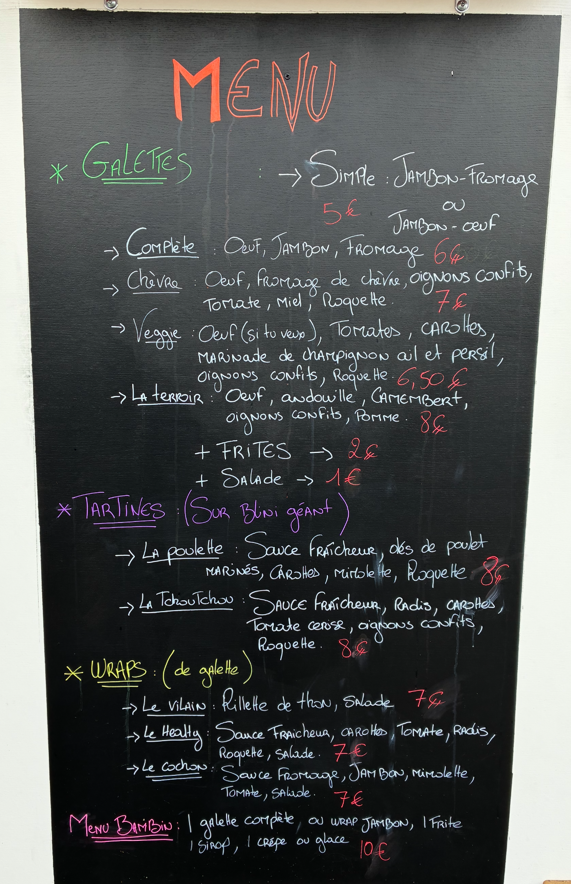 MENU
* GALETTES : → SIMPLE : JAMBON-FROMAGE
5€ OU
JAMBON-OEUF
→ COMPLÈTE : OEUF, JAMBON, FROMAGE 6€
→ CHÈVRE : OEUF, FROMAGE de CHÈVRE, OIGNONS CONFITS,
TOMATE, MIEL, ROQUETTE. 7€
→ VEGGIE : OEUF (si tu veux), TOMATES, CAROTTES,
MARINADE de CHAMPIGNON AIL et PERSIL,
OIGNONS CONFITS, ROQUETTE. 6,50€
→ LA TERROIR : OEUF, ANDOUILLE, CAMEMBERT,
OIGNONS CONFITS, POMME. 8€
+ FRITES → 2€
+ SALADE → 1€
* TARTINES : (SUR BLINI GÉANT)
→ LA POULETTE : SAUCE FRAÎCHEUR, dés de poulet
MARINÉS, CAROTTES, MIMOLETTE, ROQUETTE 8€
→ LA TCHOUTCHOU : SAUCE FRAÎCHEUR, RADIS, CAROTTES,
TOMATE CERISE, OIGNONS CONFITS,
ROQUETTE. 8€
* WRAPS : (de galette)
→ LE VILAIN : RILLETTE DE THON, SALADE 7€
→ LE HEALTY : SAUCE FRAICHEUR, CAROTTES, TOMATE, RADIS,
ROQUETTE, SALADE. 7€
→ LE COCHON : SAUCE FROMAGE, JAMBON, MIMOLETTE,
TOMATE, SALADE. 7€
MENU BAMBIN : 1 galette complète, ou WRAP JAMBON, 1 FRITE
1 SIROP, 1 CRÊPE ou glace 10€